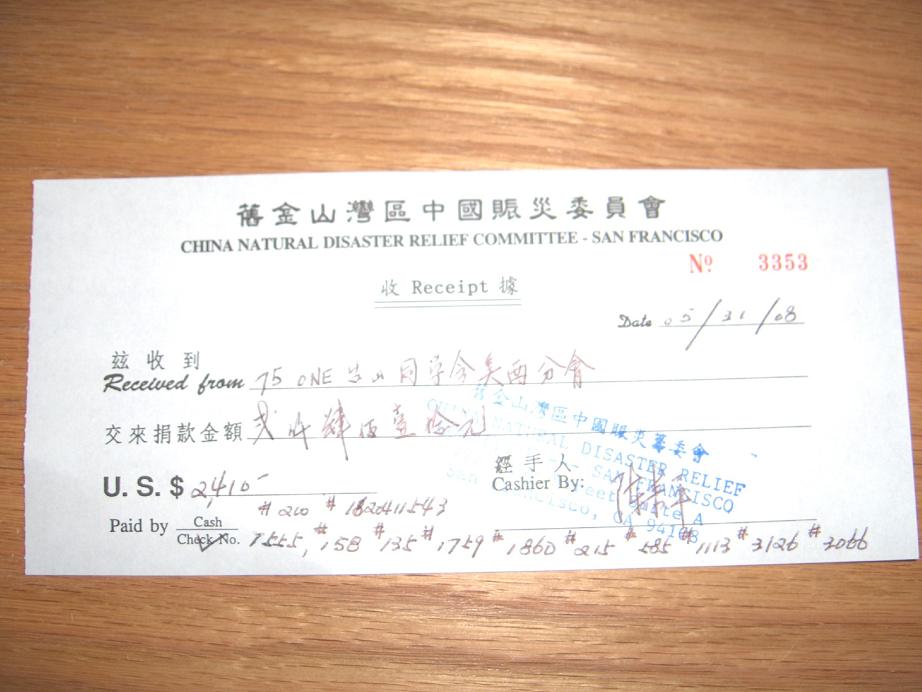 舊金山灣區中國賑災委員會
CHINA NATURAL DISASTER RELIEF COMMITTEE - SAN FRANCISCO
Nº 3353
收 Receipt 據
Date 05/31/08
茲收到
Received from 75 ONE 同學會美西分會
交來捐款金額 貳仟肆佰壹拾元
舊金山灣區中國賑災籌委會
CHINA NATURAL DISASTER RELIEF
SAN FRANCISCO
Street, Suite A
San Francisco, CA 94108
經手人
Cashier By:
U.S.$ 2,410-
#210 #182411543
Paid by Cash
Check No. 1555, #158 #135 #1759 #1860 #215 #585 #1113 #3126 #3066